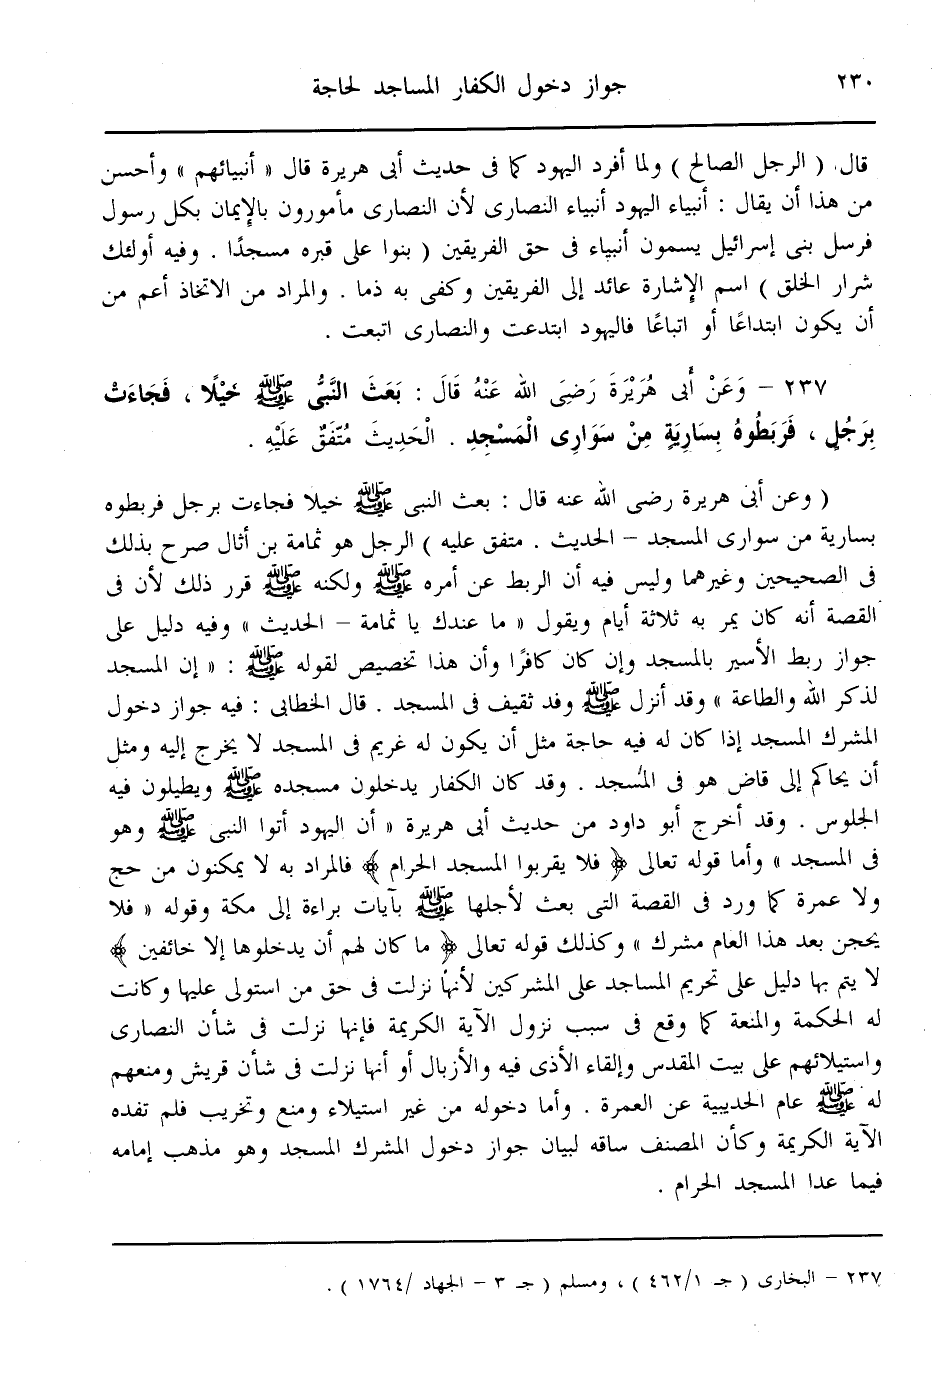 ٢٣٠
جواز دخول الكفار المساجد لحاجة
قال ( الرجل الصالح ) ولما أفرد اليهود كما فى حديث أبى هريرة قال « أنبيائهم » وأحسن
من هذا أن يقال : أنبياء اليهود أنبياء النصارى لأن النصارى مأمورون بالإيمان بكل رسول
فرسل بنى إسرائيل يسمون أنبياء فى حق الفريقين ( بنوا على قبره مسجدًا . وفيه أولئك
شرار الخلق ) اسم الإشارة عائد إلى الفريقين وكفى به ذما . والمراد من الاتخاذ أعم من
أن يكون ابتداعًا أو اتباعًا فاليهود ابتدعت والنصارى اتبعت .
٢٣٧ – وَعَنْ أَبِى هُرَيْرَةَ رَضِىَ اللهُ عَنْهُ قَالَ : بَعَثَ النَّبِىُّ ﷺ خَيْلًا ، فَجَاءَتْ
بِرَجُلٍ ، فَرَبَطُوهُ بِسَارِيَةٍ مِنْ سَوَارِى الْمَسْجِدِ . الْحَدِيثَ مُتَّفَقٌ عَلَيْهِ .
( وعن أبى هريرة رضى الله عنه قال : بعث النبى ﷺ خيلا فجاءت برجل فربطوه
بسارية من سوارى المسجد – الحديث . متفق عليه ) الرجل هو ثمامة بن أثال صرح بذلك
فى الصحيحين وغيرهما وليس فيه أن الربط عن أمره ﷺ ولكنه ﷺ قرر ذلك لأن فى
القصة أنه كان يمر به ثلاثة أيام ويقول « ما عندك يا ثمامة – الحديث » وفيه دليل على
جواز ربط الأسير بالمسجد وإن كان كافرًا وأن هذا تخصيص لقوله ﷺ : « إن المسجد
لذكر الله والطاعة » وقد أنزل ﷺ وفد ثقيف فى المسجد . قال الخطابى : فيه جواز دخول
المشرك المسجد إذا كان له فيه حاجة مثل أن يكون له غريم فى المسجد لا يخرج إليه ومثل
أن يحاكم إلى قاض هو فى المسجد . وقد كان الكفار يدخلون مسجده ﷺ ويطيلون فيه
الجلوس . وقد أخرج أبو داود من حديث أبى هريرة « أن اليهود أتوا النبى ﷺ وهو
فى المسجد » وأما قوله تعالى ﴿ فلا يقربوا المسجد الحرام ﴾ فالمراد به لا يمكنون من حج
ولا عمرة كما ورد فى القصة التى بعث لأجلها ﷺ بآيات براءة إلى مكة وقوله « فلا
يحجن بعد هذا العام مشرك » وكذلك قوله تعالى ﴿ ما كان لهم أن يدخلوها إلا خائفين ﴾
لا يتم بها دليل على تحريم المساجد على المشركين لأنها نزلت فى حق من استولى عليها وكانت
له الحكمة والمنعة كما وقع فى سبب نزول الآية الكريمة فإنها نزلت فى شأن النصارى
واستيلائهم على بيت المقدس وإلقاء الأذى فيه والأزبال أو أنها نزلت فى شأن قريش ومنعهم
له ﷺ عام الحديبية عن العمرة . وأما دخوله من غير استيلاء ومنع وتخريب فلم تفده
الآية الكريمة وكأن المصنف ساقه لبيان جواز دخول المشرك المسجد وهو مذهب إمامه
فيما عدا المسجد الحرام .
٢٣٧ – البخارى ( جـ ٤٦٢/١ ) ، ومسلم ( جـ ٣ – الجهاد /١٧٦٤ ) .